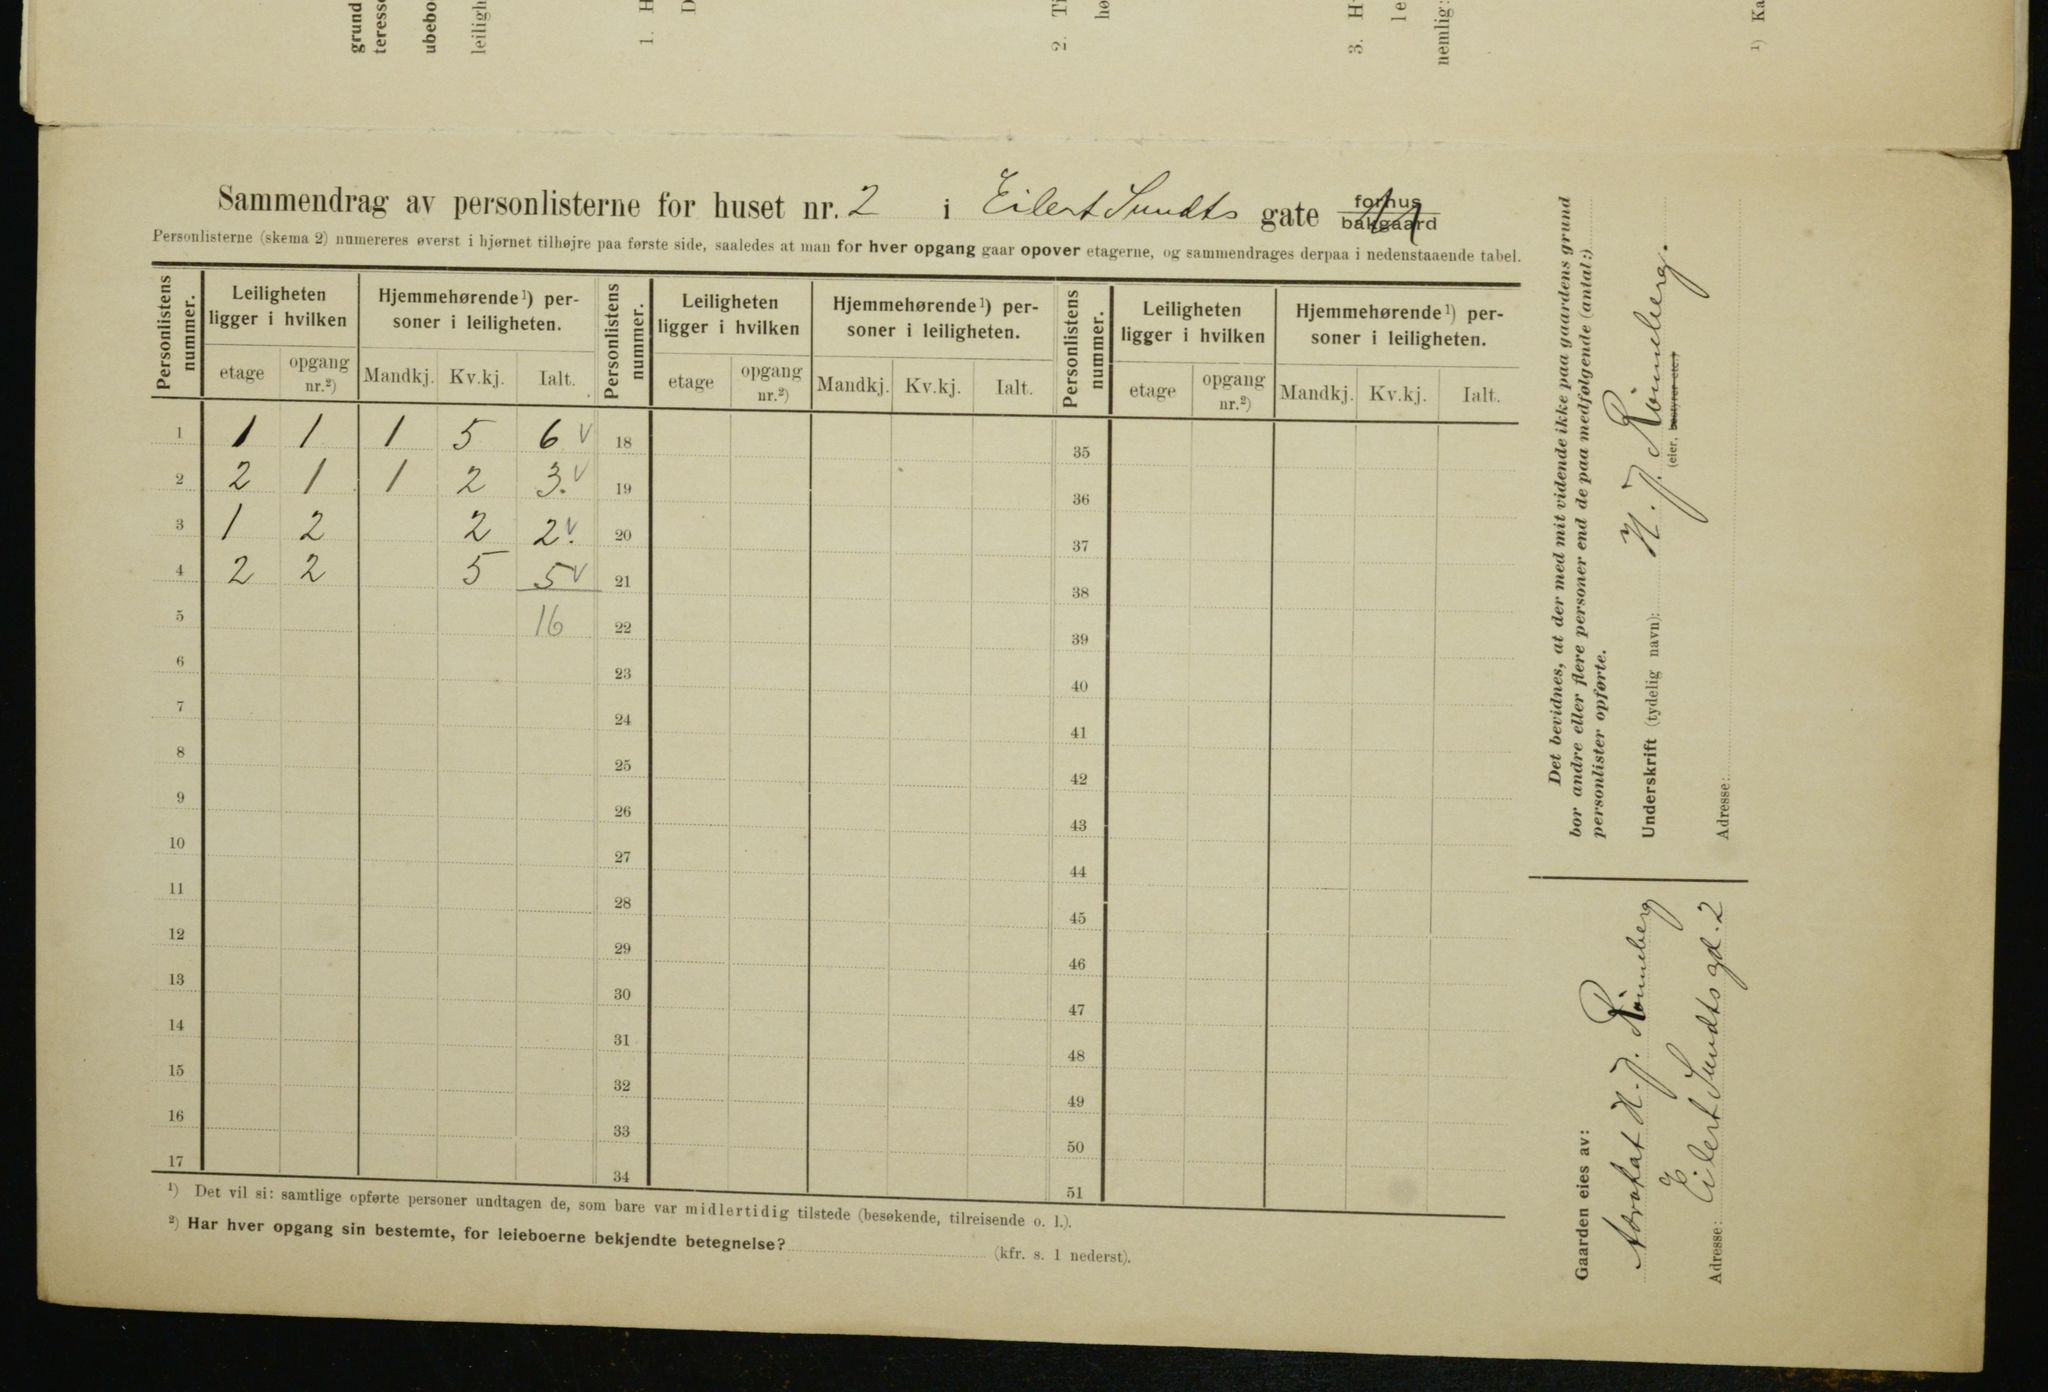 grund
teresse
ubebo
leiligh
1. H
D
2. Ti
hø
3. H
le
nemlig:
¹) Ka
Sammendrag av personlisterne for huset nr. 2 i Eilert Sundts gate forhus bakgaard
Personlisterne (skema 2) numereres øverst i hjørnet tilhøjre paa første side, saaledes at man for hver opgang gaar opover etagerne, og sammendrages derpaa i nedenstaaende tabel.
Personlistens nummer. Leiligheten ligger i hvilken Hjemmehørende¹) personer i leiligheten. Personlistens nummer. Leiligheten ligger i hvilken Hjemmehørende¹) personer i leiligheten. Personlistens nummer. Leiligheten ligger i hvilken Hjemmehørende¹) personer i leiligheten.
etage opgang nr.²) Mandkj. Kv.kj. Ialt. etage opgang nr.²) Mandkj. Kv.kj. Ialt. etage opgang nr.²) Mandkj. Kv.kj. Ialt.
1 1 1 1 5 6 v 18 35
2 2 1 1 2 3. v 19 36
3 1 2 2 2. v 20 37
4 2 2 5 5 v 21 38
5 16 22 39
6 23 40
7 24 41
8 25 42
9 26 43
10 27 44
11 28 45
12 29 46
13 30 47
14 31 48
15 32 49
16 33 50
17 34 51
¹) Det vil si: samtlige opførte personer undtagen de, som bare var midlertidig tilstede (besøkende, tilreisende o. l.).
²) Har hver opgang sin bestemte, for leieboerne bekjendte betegnelse? (kfr. s. 1 nederst).
Det bevidnes, at der med mit vidende ikke paa gaardens grund
bor andre eller flere personer end de paa medfølgende (antal:)
personlister opførte.
Underskrift (tydelig navn): H. J. Rönneberg.
(eier, bestyrer etc.)
Adresse:
Gaarden eies av:
Advokat H. J. Rönneberg
Adresse: Eilert Sundts gd. 2